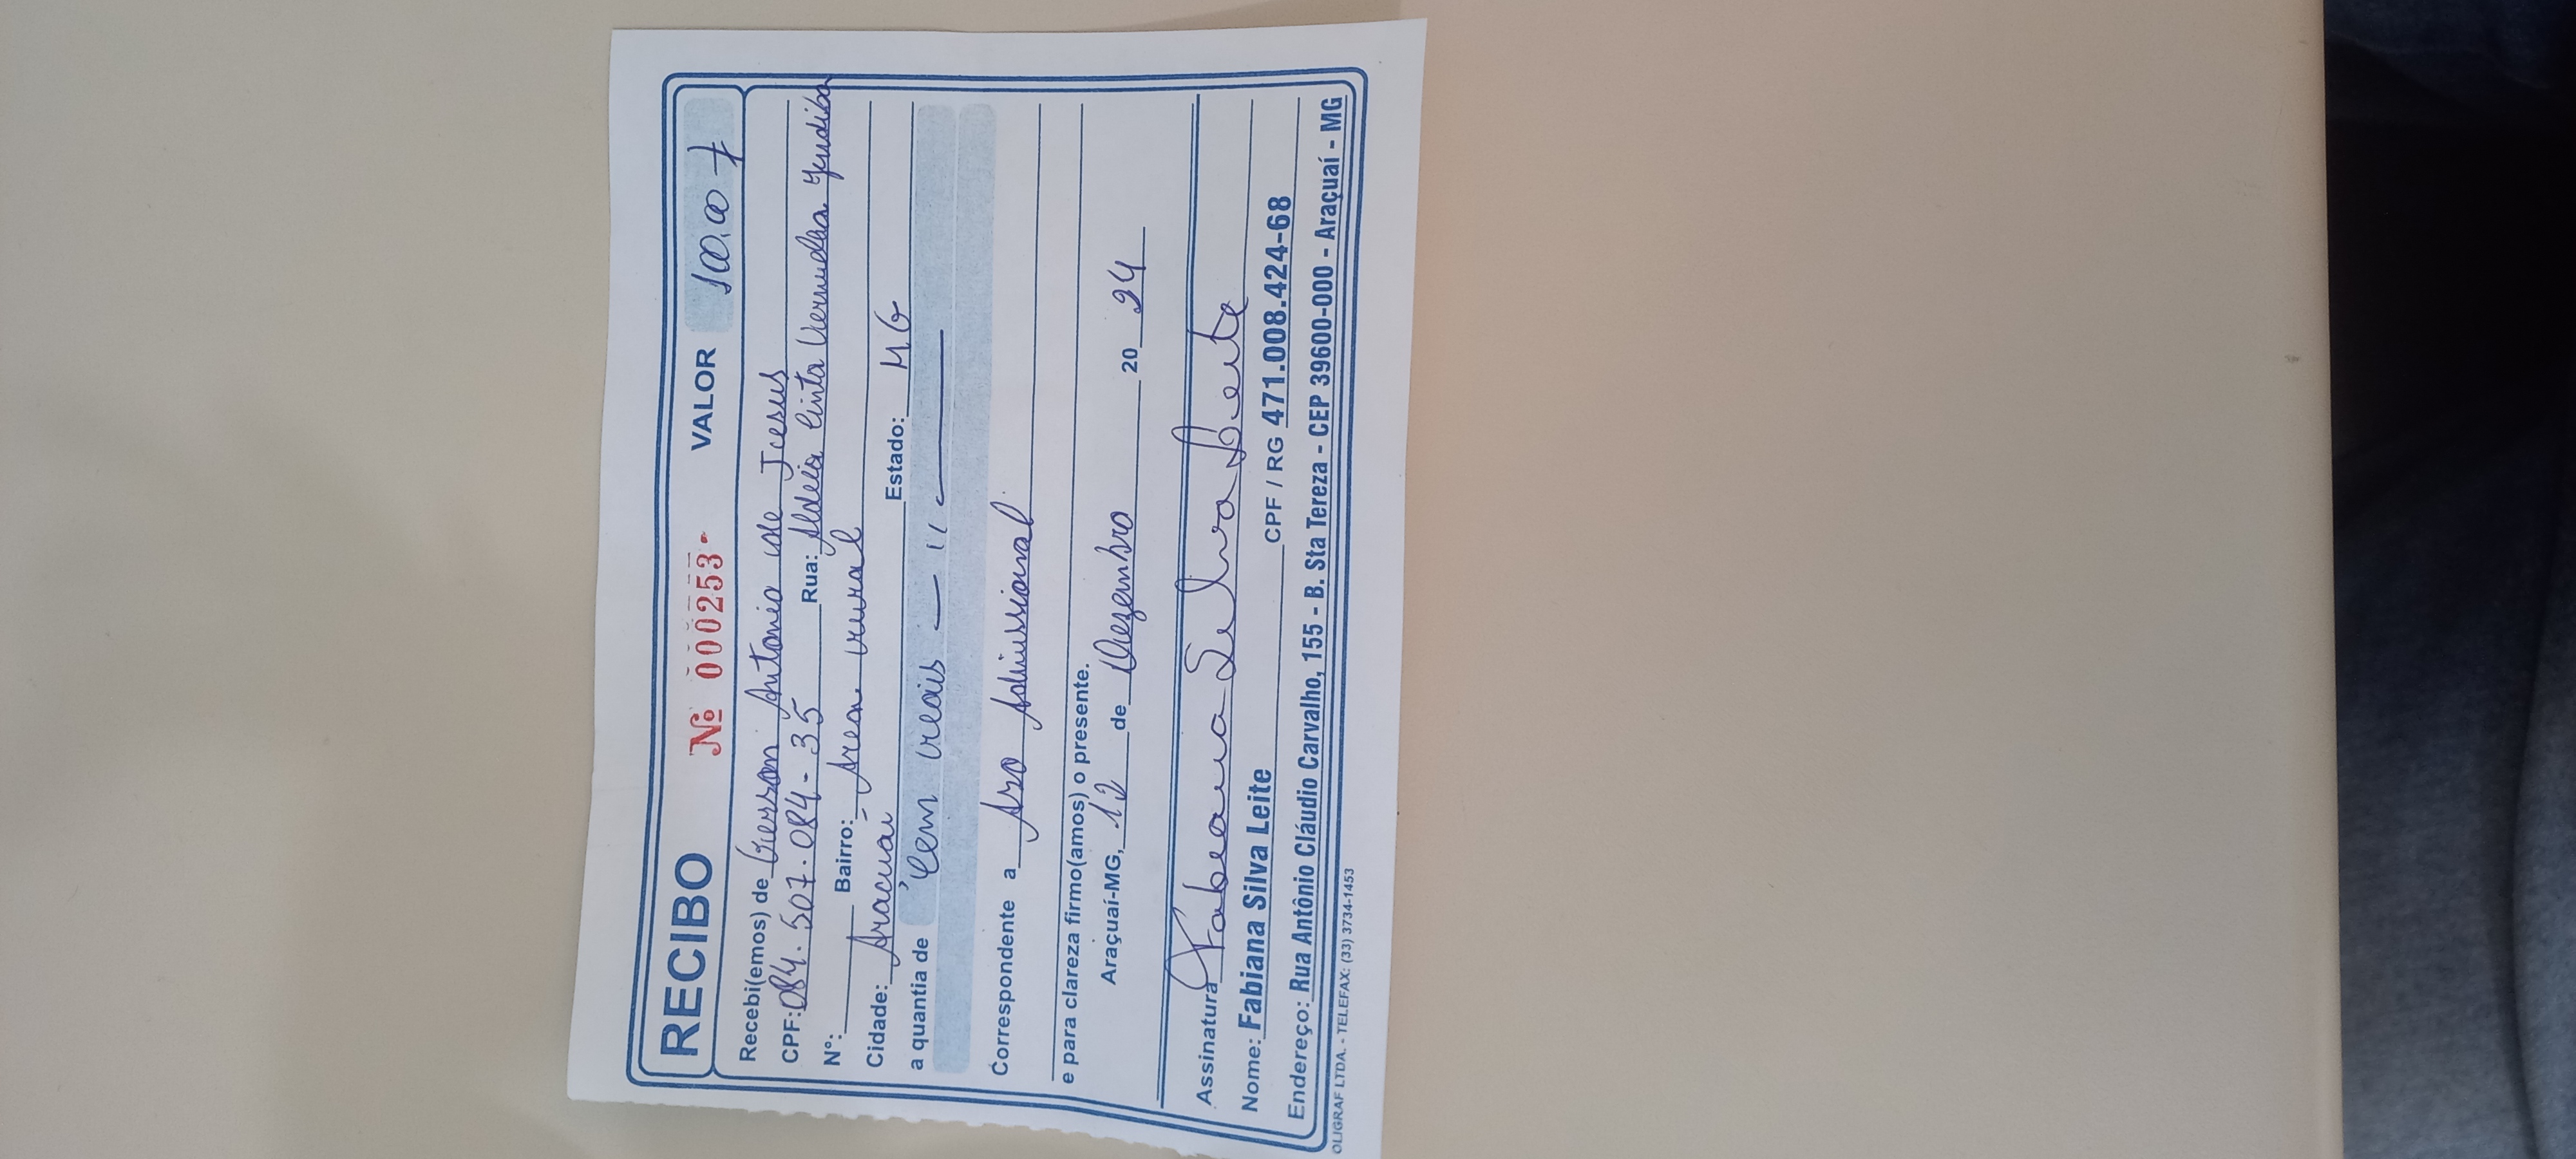 RECIBO Nº 000253 VALOR 100,00
Recebi(emos) de Gerson Antonio de Jesus
CPF: 084.507.084-35 Rua: Aldeia Cinta Vermelha Jundiba
Nº: Bairro: Area rural
Cidade: Araçuaí Estado: MG
a quantia de Cem reais
Correspondente a Aso Admissional
e para clareza firmo(amos) o presente.
Araçuaí-MG, 12 de Dezembro 20 24
Assinatura Fabiana Silva Leite
Nome: Fabiana Silva Leite CPF / RG 471.008.424-68
Endereço: Rua Antônio Cláudio Carvalho, 155 - B. Sta Tereza - CEP 39600-000 - Araçuaí - MG
OLIGRAF LTDA. - TELEFAX: (33) 3734-1453